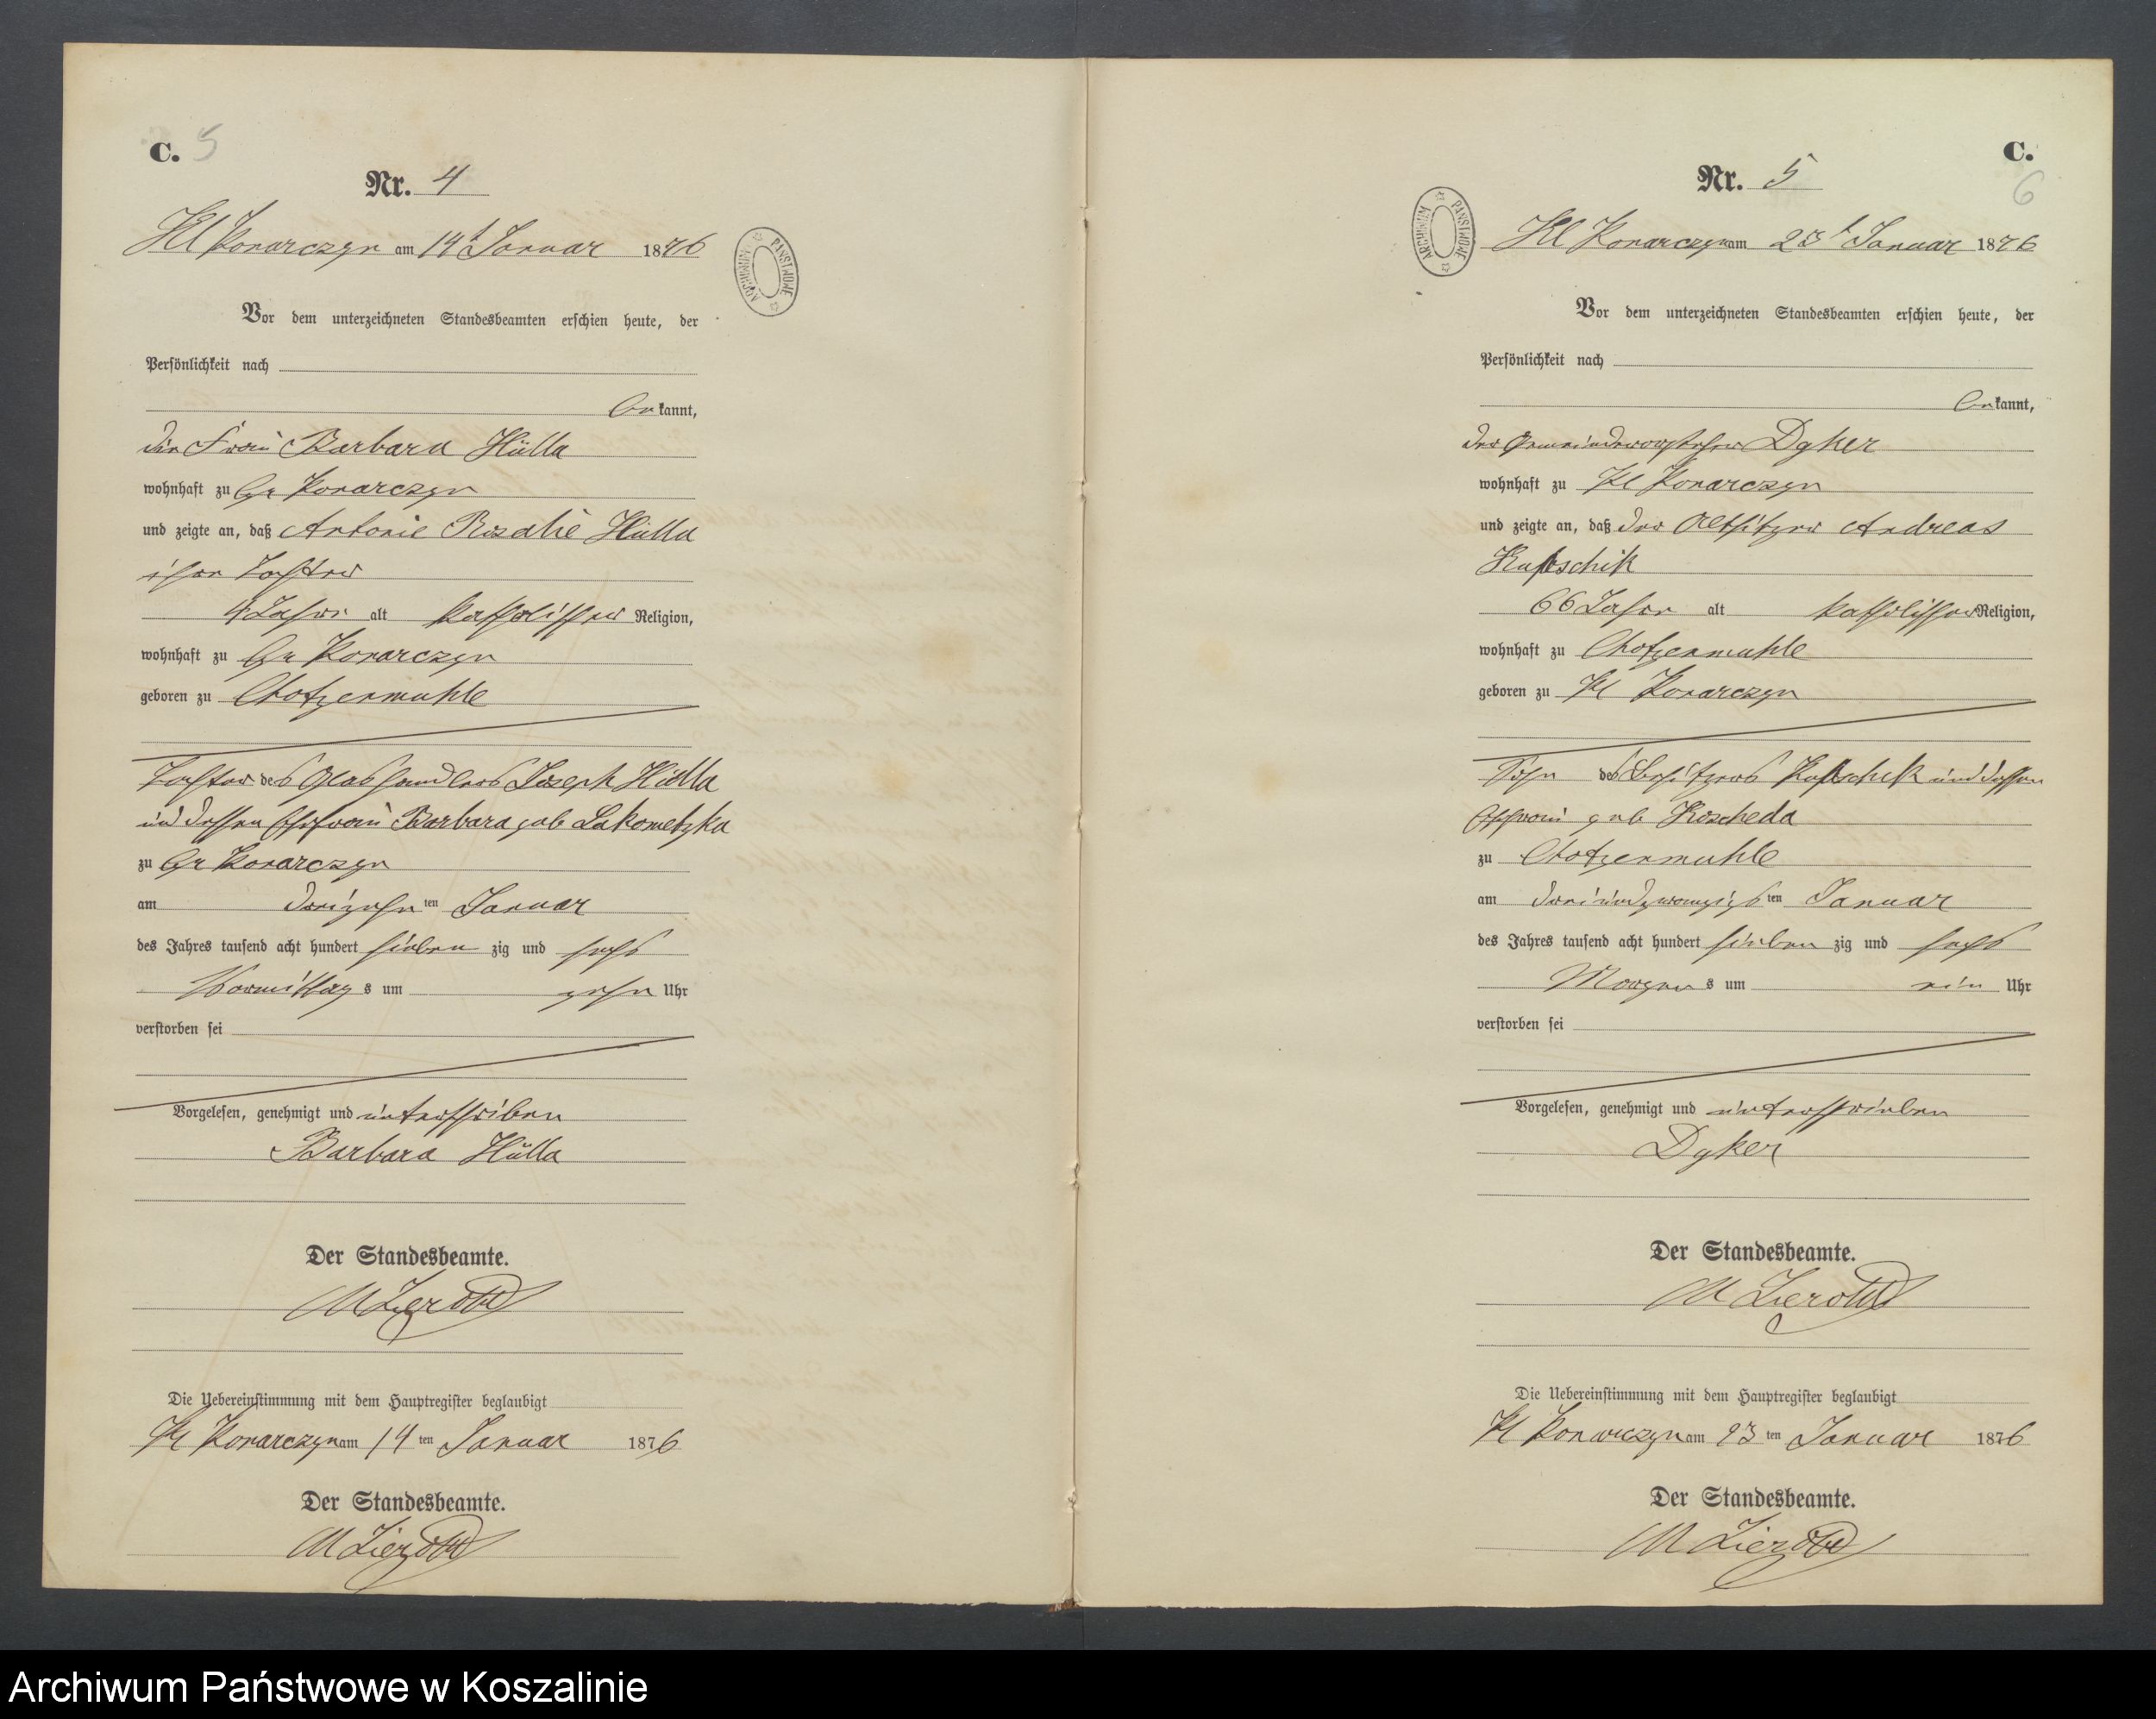 C. 5
Nr. 4
Kl Konarczyn am 14t Januar 1876
ARCHIWUM PAŃSTWOWE
Vor dem unterzeichneten Standesbeamten erschien heute, der
Persönlichkeit nach
bekannt,
die Frau Barbara Hülla
wohnhaft zu Gr Konarczyn
und zeigte an, daß Antonie Rosalie Hülla
ihre Tochter
4 Jahre alt katholischer Religion,
wohnhaft zu Gr Konarczyn
geboren zu Chotzenmuhle
Tochter des Glashandlers Joseph Hülla
und dessen Ehefrau Barbara geb Lakometzka
zu Gr Konarczyn
am dreizehn ten Januar
des Jahres tausend acht hundert sieben zig und sechs
Vormittag s um zehn Uhr
verstorben sei
Vorgelesen, genehmigt und unterschriben
Barbara Hülla
Der Standesbeamte.
M Zierott
Die Uebereinstimmung mit dem Hauptregister beglaubigt
Kl Konarczyn am 14 ten Januar 1876
Der Standesbeamte.
M Zierott
C.
6
Nr. 5
ARCHIWUM PAŃSTWOWE
Kl Konarczyn am 23t Januar 1876
Vor dem unterzeichneten Standesbeamten erschien heute, der
Persönlichkeit nach
bekannt,
der Gemeindevorsteher Dyker
wohnhaft zu Kl Konarczyn
und zeigte an, daß der Altsitzer Andreas
66 Jahre alt katholischer Religion,
wohnhaft zu Chotzenmuhle
geboren zu Kl Konarczyn
Sohn des Besitzers und dessen
Ehefrau geb Koscheda
zu Chotzenmuhle
am dreiundzwanzigs ten Januar
des Jahres tausend acht hundert sieben zig und sechs
Morgen s um ein Uhr
verstorben sei
Vorgelesen, genehmigt und unterschrieben
Dyker
Der Standesbeamte.
M Zierott
Die Uebereinstimmung mit dem Hauptregister beglaubigt
Kl Konarczyn am 23 ten Januar 1876
Der Standesbeamte.
M Zierott
Archiwum Państwowe w Koszalinie